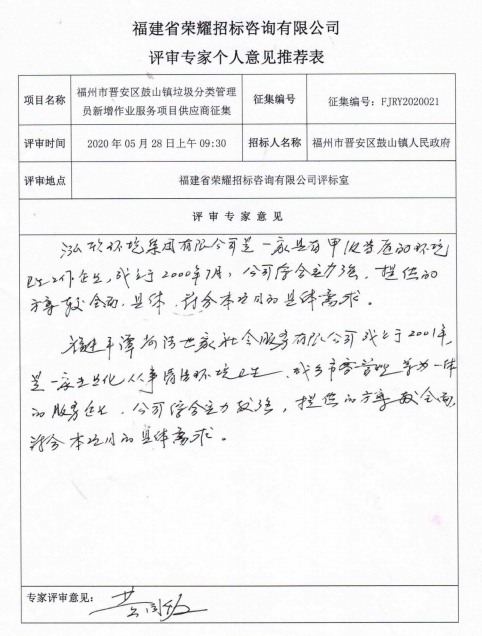 福建省荣耀招标咨询有限公司
评审专家个人意见推荐表
项目名称
福州市晋安区鼓山镇垃圾分类管理
员新增作业服务项目供应商征集
征集编号
征集编号: FJRY2020021
评审时间
2020 年 05 月 28 日上午 09:30
招标人名称
福州市晋安区鼓山镇人民政府
评审地点
福建省荣耀招标咨询有限公司评标室
评 审 专 家 意 见
环境集团有限公司是一家具有甲级资质的环境
卫生工作企业,成立于2000年7月,公司综合实力强,提供的
方案较全面、具体,符合本项目的具体需求。
福建平潭世家社会服务有限公司成立于2001年,
是一家专业化从事清洁环境卫生、城乡市容管理等为一体
的服务企业,公司综合实力较强,提供的方案较全面,
符合本项目的具体需求。
专家评审意见: